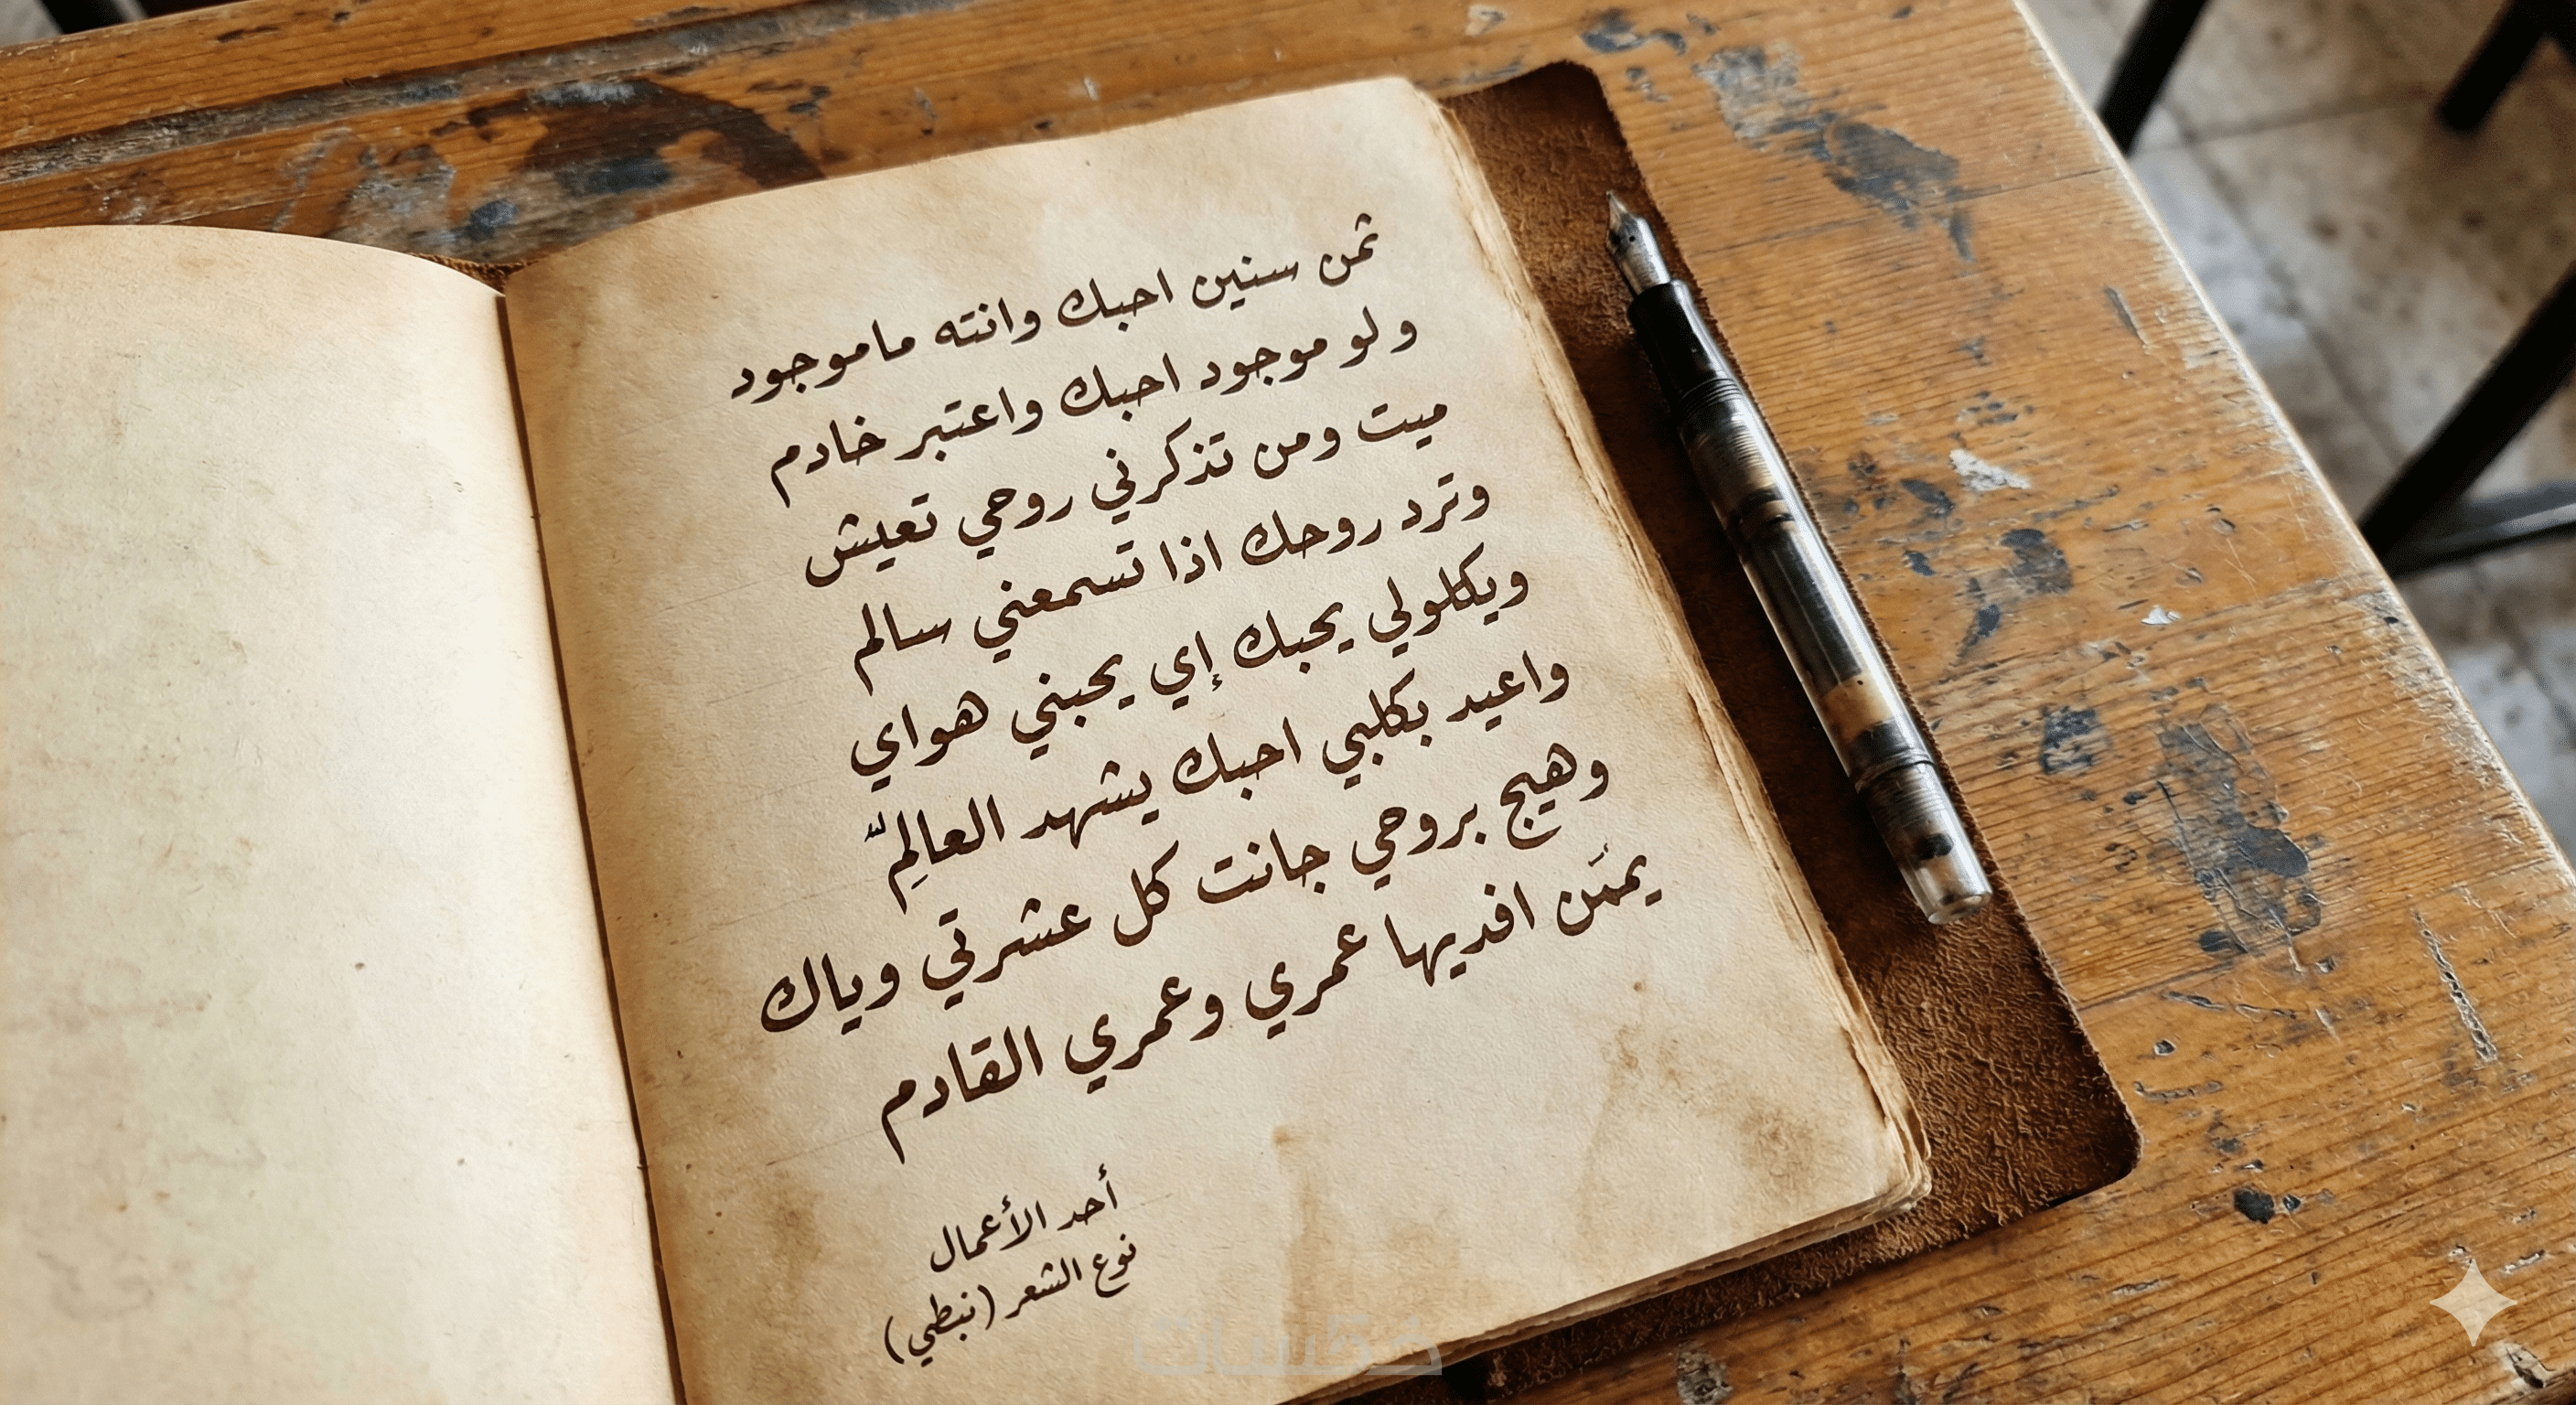 ثمن سنين احبك وانته ماموجود
ولو موجود احبك واعتبر خادم
ميت ومن تذكرني روحي تعيش
وترد روحك اذا تسمعني سالم
ويكلولي يحبك إي يحبني هواي
واعيد بكلبي احبك يشهد العالِمّ
وهيج بروحي جانت كل عشرتي وياك
يمَن افديها عمري وعمري القادم
أحد الأعمال
نوع الشعر (نبطي)
خمسات